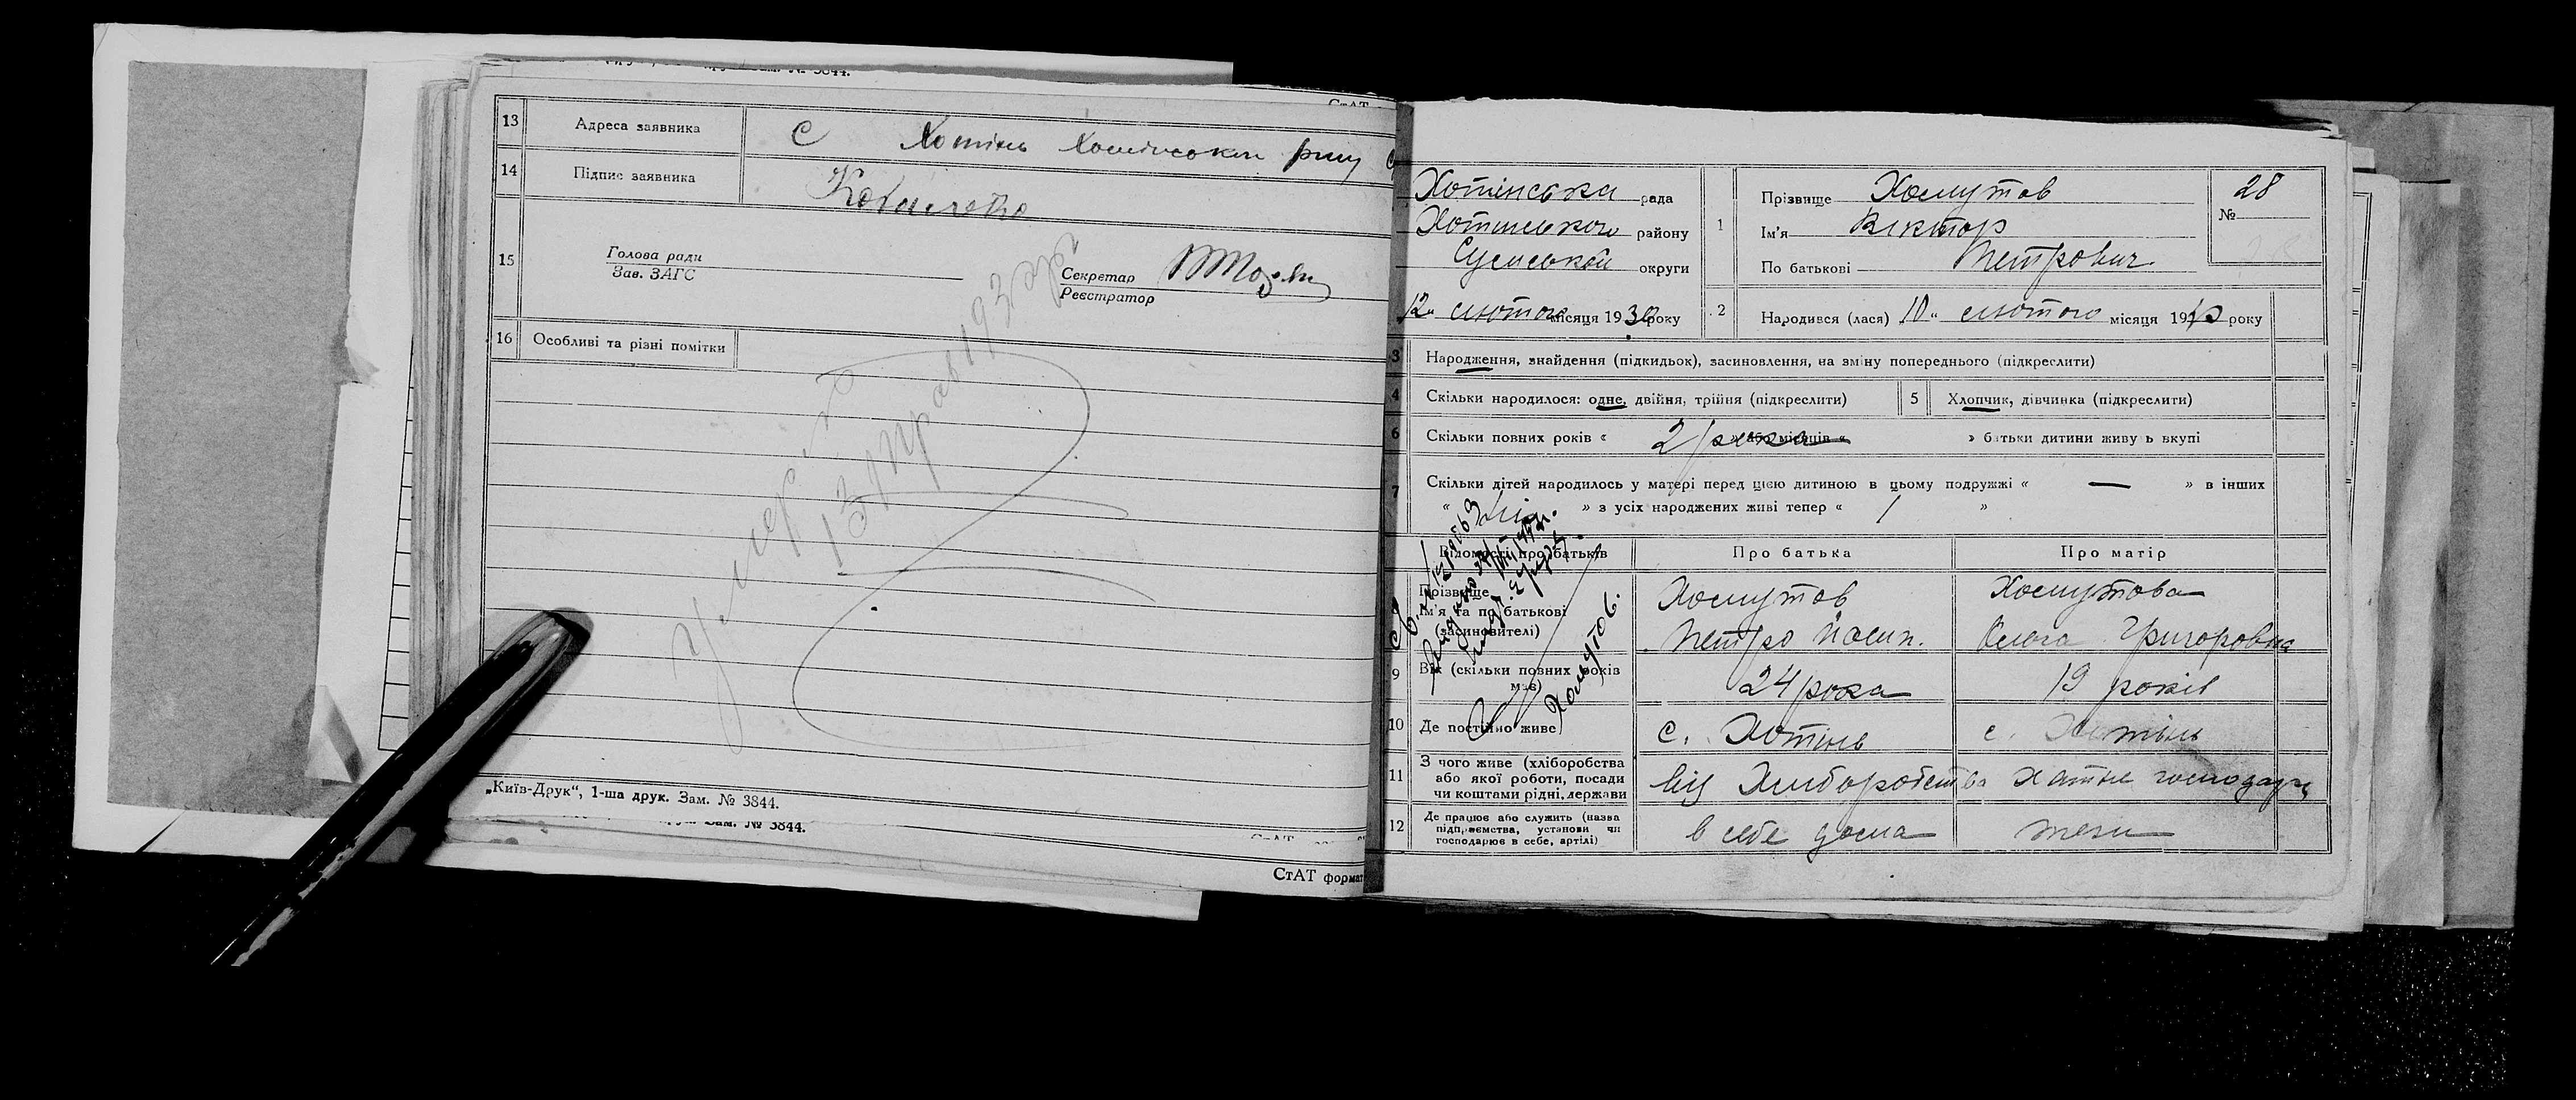 Зам. № 3844.
СтАТ
13 Адреса заявника С Хотінь Хотінської
14 Підпис заявника Коваленко
15 Голова ради
Зав. ЗАГС
Секретар
Реєстратор
16 Особливі та різні помітки
Умер
13 Априля 193
„Київ-Друк“, 1-ша друк. Зам. № 3844.
Зам. № 3844.
СтАТ формат
Хотінська рада
Хотинського району
Сумської округи
12 лютого місяця 1930 року
1 Прізвище Хомутов
Ім'я Віктор
По батькові Петрович
№ 28
2 Народився (лася) 10 „ лютого місяця 19 року
3 Народження, знайдення (підкидьок), засиновлення, на зміну попереднього (підкреслити)
4 Скільки народилося: одне, двійня, трійня (підкреслити)
5 Хлопчик, дівчинка (підкреслити)
6 Скільки повних років « 2 рока » або місяців « » батьки дитини живуть вкупі
7 Скільки дітей народилось у матері перед цією дитиною в цьому подружжі « — » в інших
« » з усіх народжених живі тепер « 1 »
Відомості про батьків Про батька Про матір
Прізвище Хомутов Хомутова
Ім'я та по батькові
(засиновителі) Петро Йосип. Ольга Григоровна
9 Вік (скільки повних років має) 24 рока 19 років
Хомутов.
10 Де постійно живе с. Хотінь с. Хотінь
11 З чого живе (хліборобства
або якої роботи, посади
чи коштами рідні, держави від Хліборобства хатнє господар
12 Де працює або служить (назва
підприємства, установи чи
господарює в себе, артілі) в себе дома тези